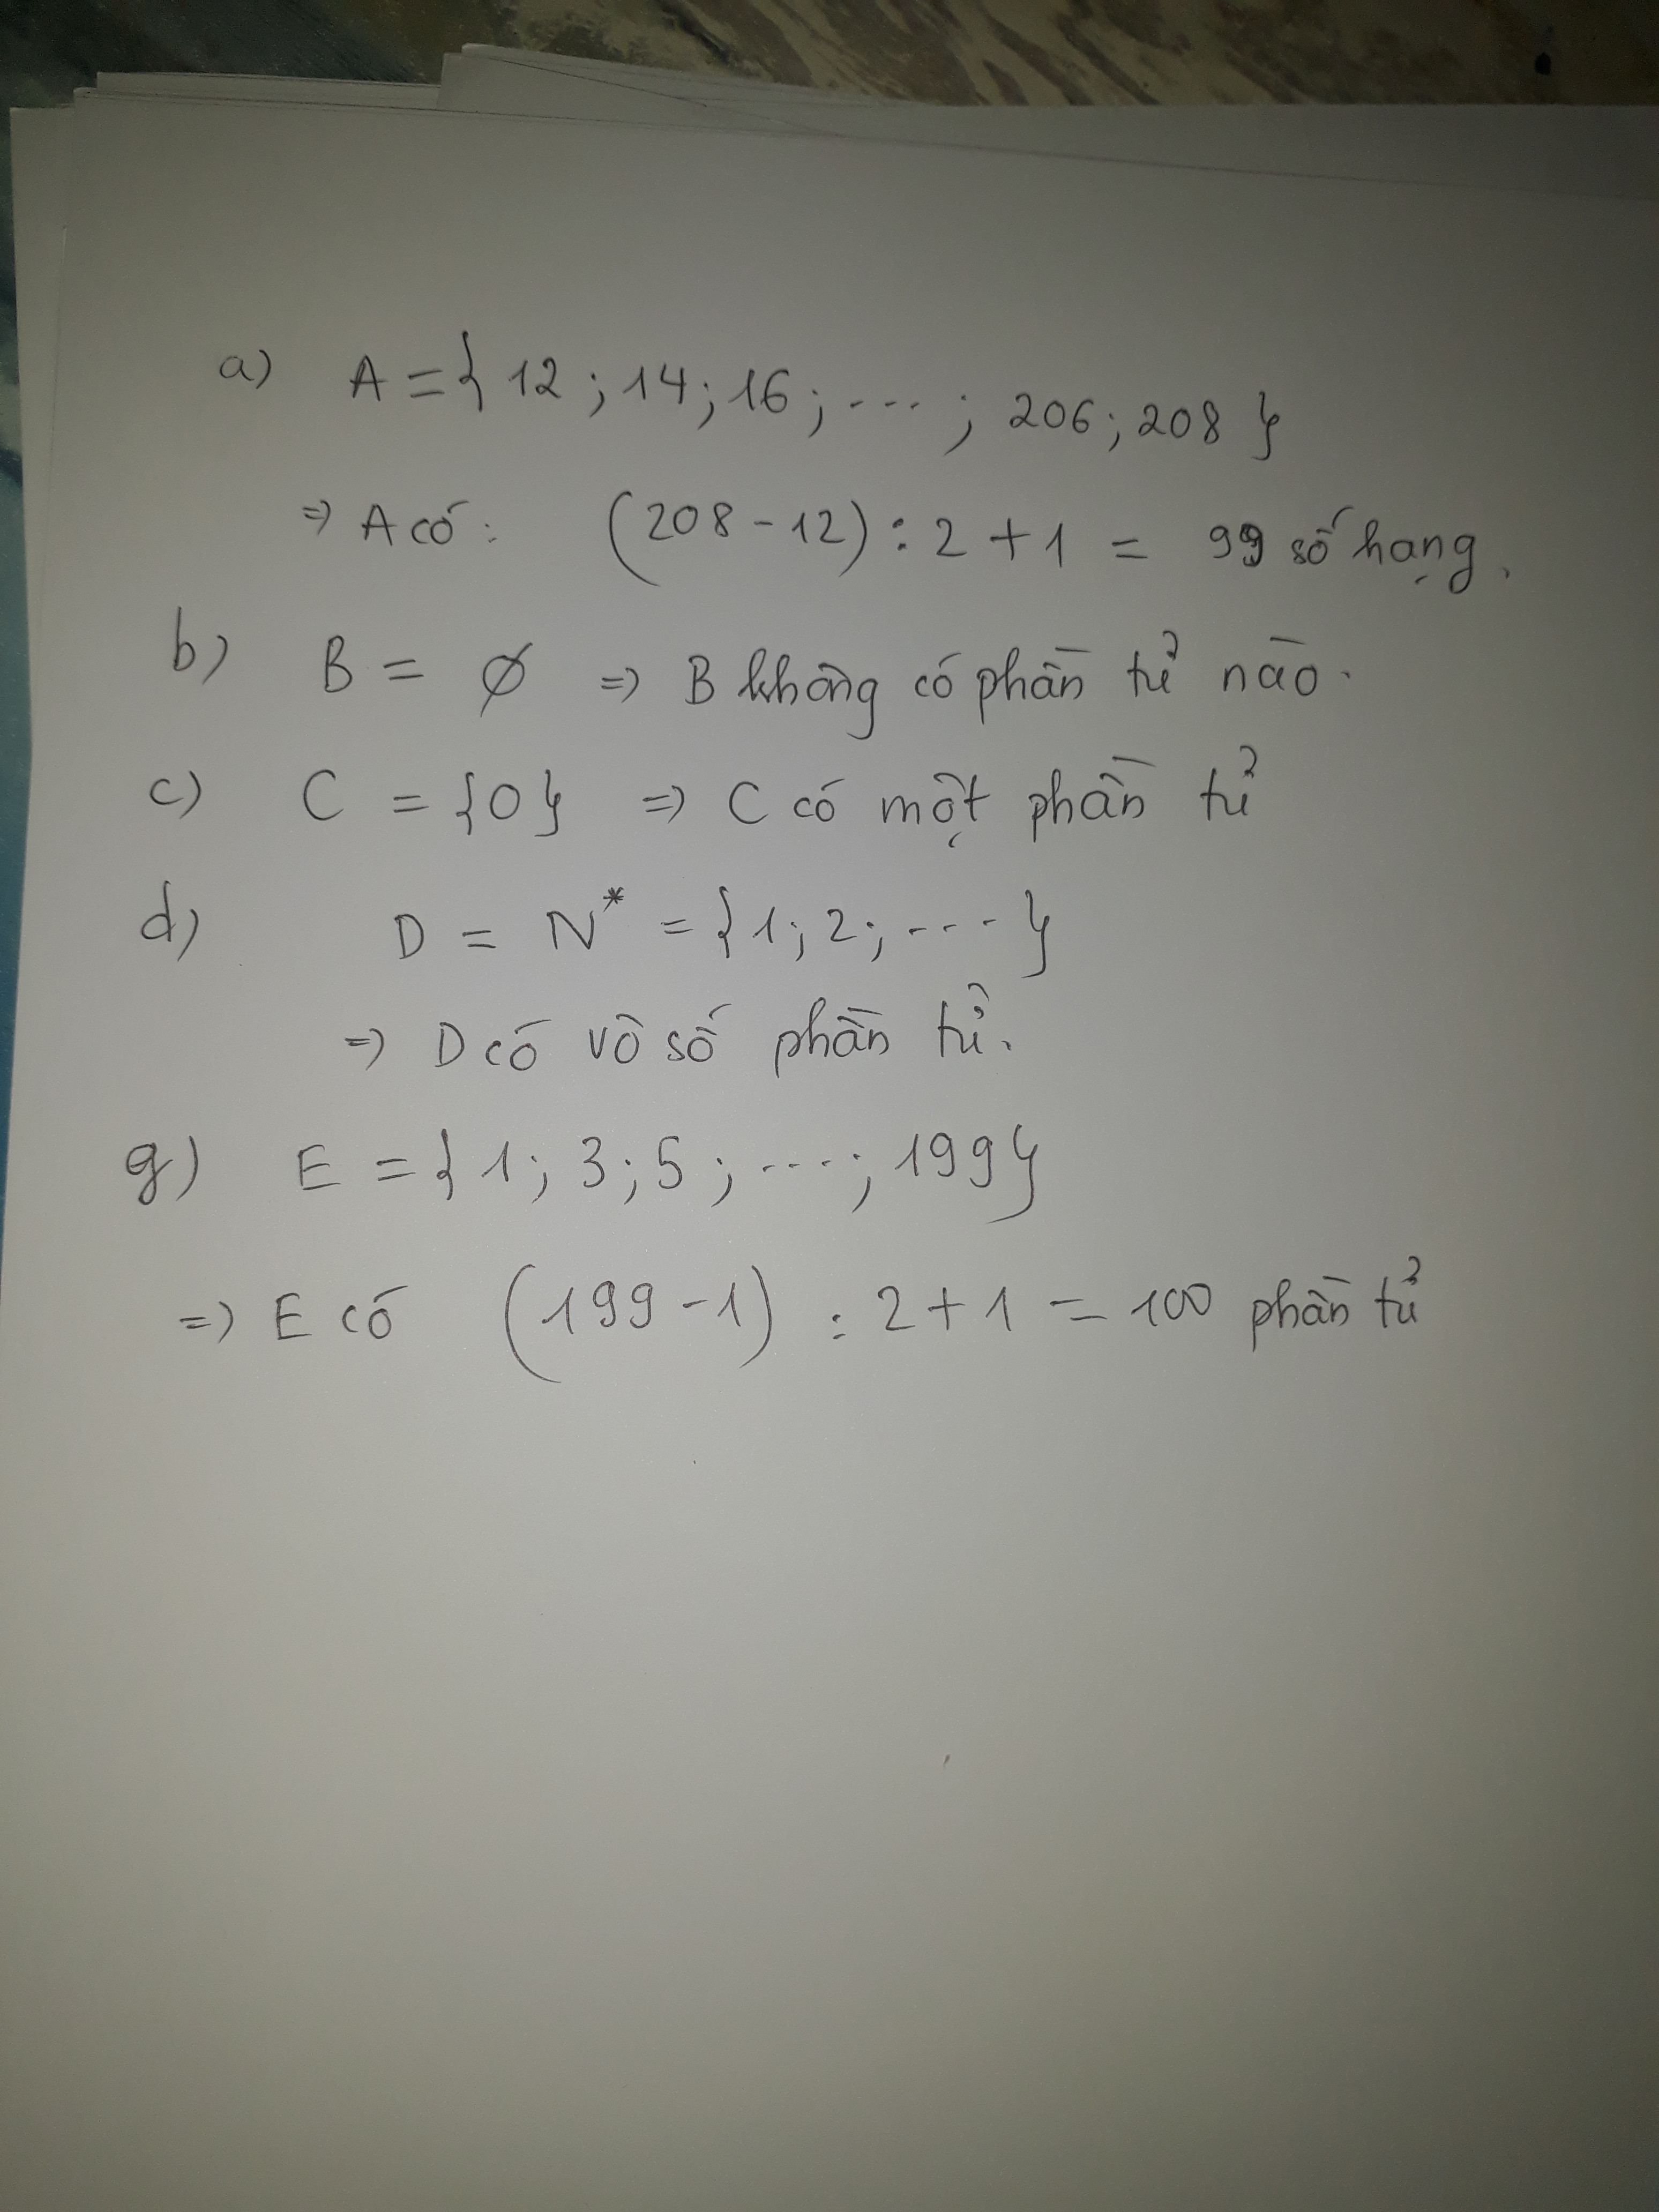 a) A = { 12 ; 14 ; 16 ; ... ; 206 ; 208 }
=> A có : (208 - 12) : 2 + 1 = 99 số hạng.
b) B = ∅ => B không có phần tử nào.
c) C = {0} => C có một phần tử
d) D = N* = {1 ; 2 ; .... }
=> D có vô số phần tử.
g) E = { 1 ; 3 ; 5 ; .... ; 199}
=> E có (199 - 1) : 2 + 1 = 100 phần tử